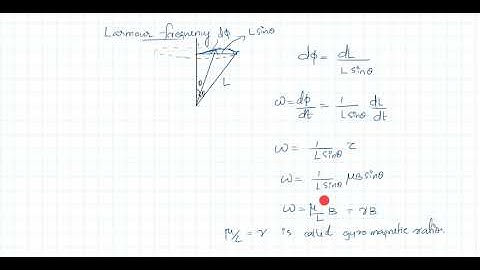 Larmour frequency dϕ
L sinθ
θ
L
dϕ = dL / L sinθ
ω = dϕ/dt = 1/L sinθ dL/dt
ω = 1/L sinθ τ
ω = 1/L sinθ μB sinθ
ω = μ/L B = γB
μ/L = γ is called gyro magnetic ratio.